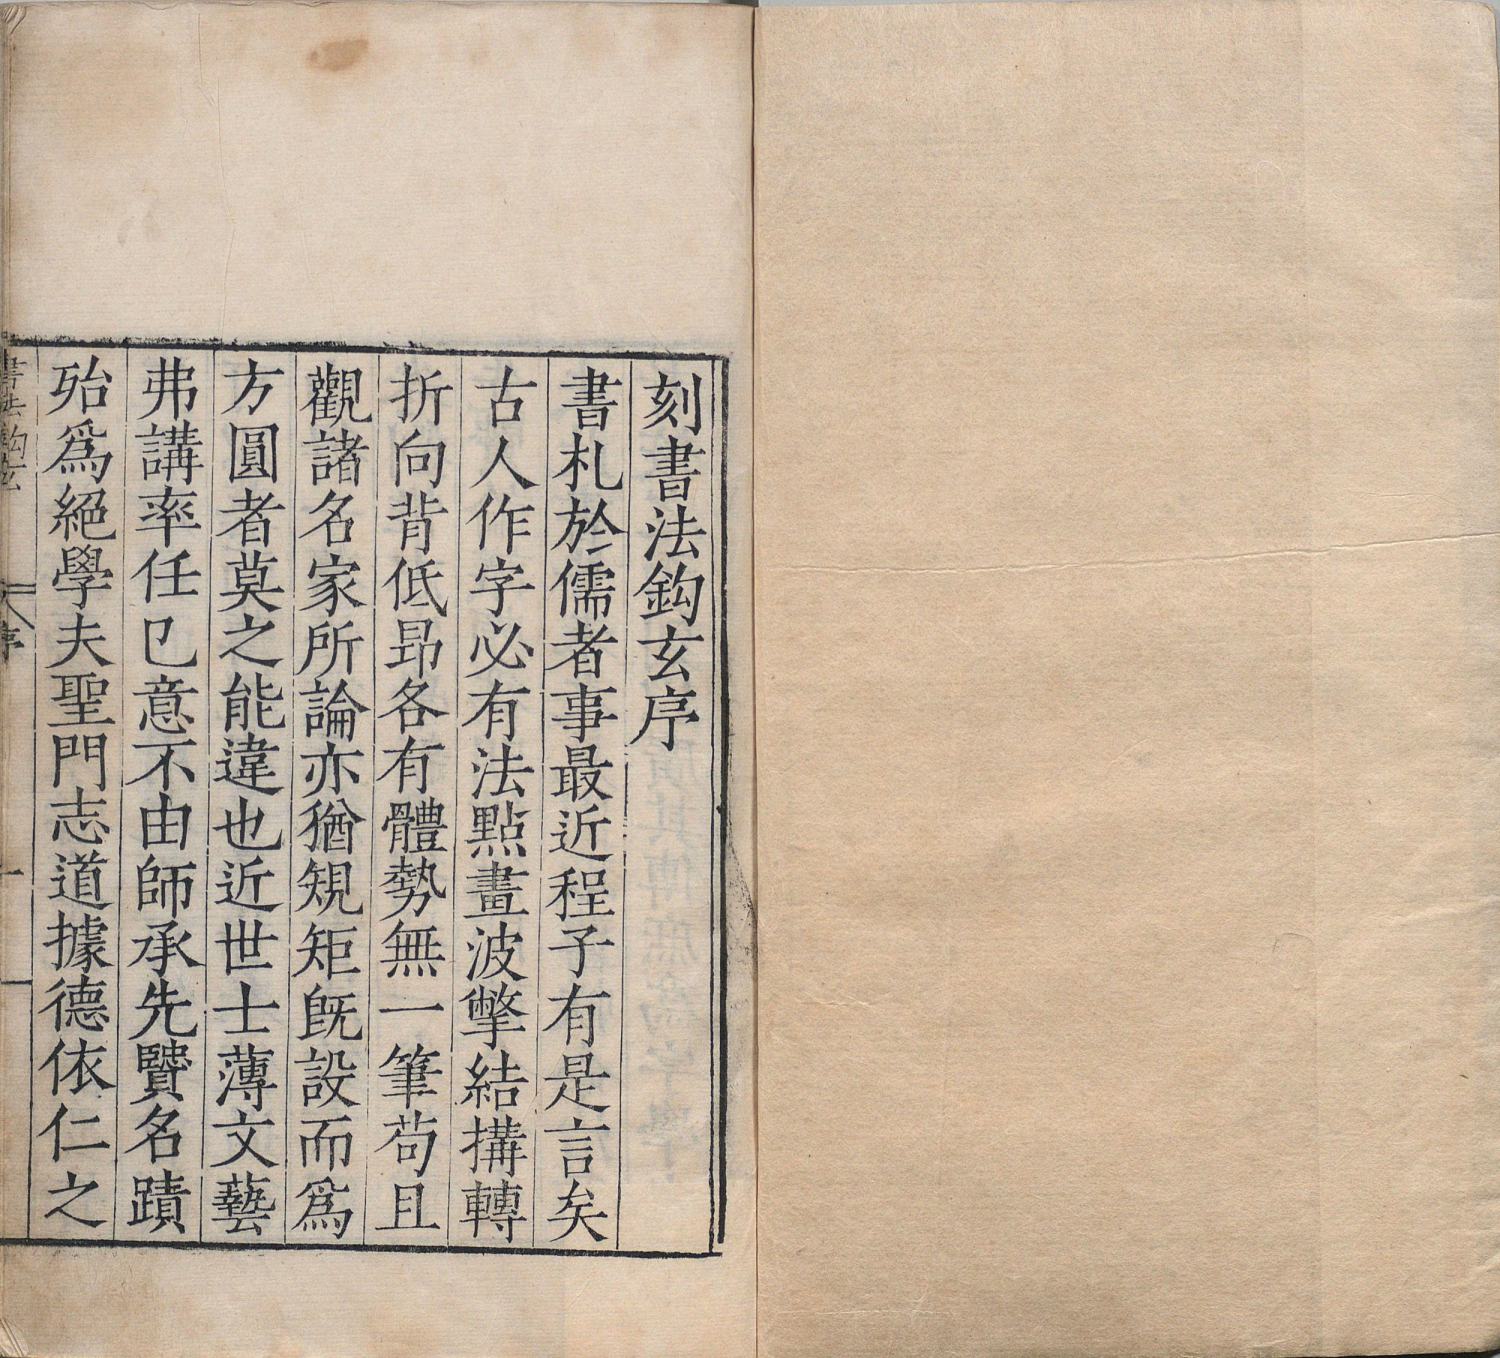 刻書法鈎玄序
書札於儒者事最近程子有是言矣
古人作字必有法點畫波擎結搆轉
折向背低昻各有體勢無一筆茍且
觀諸名家所論亦猶䂓矩旣設而爲
方圓者莫之能違也近世士薄文藝
弗講率任已意不由師承先贒名蹟
殆爲絕學夫聖門志道據德依仁之
書法鈎玄
序
一